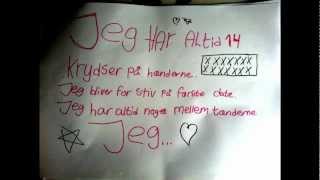 Jeg HAR Altid 14
Krydser på hænderne.
XXXXXXX
XXXXXXX
Jeg bliver for stiv på første date.
Jeg har altid noget mellem tænderne.
Jeg...